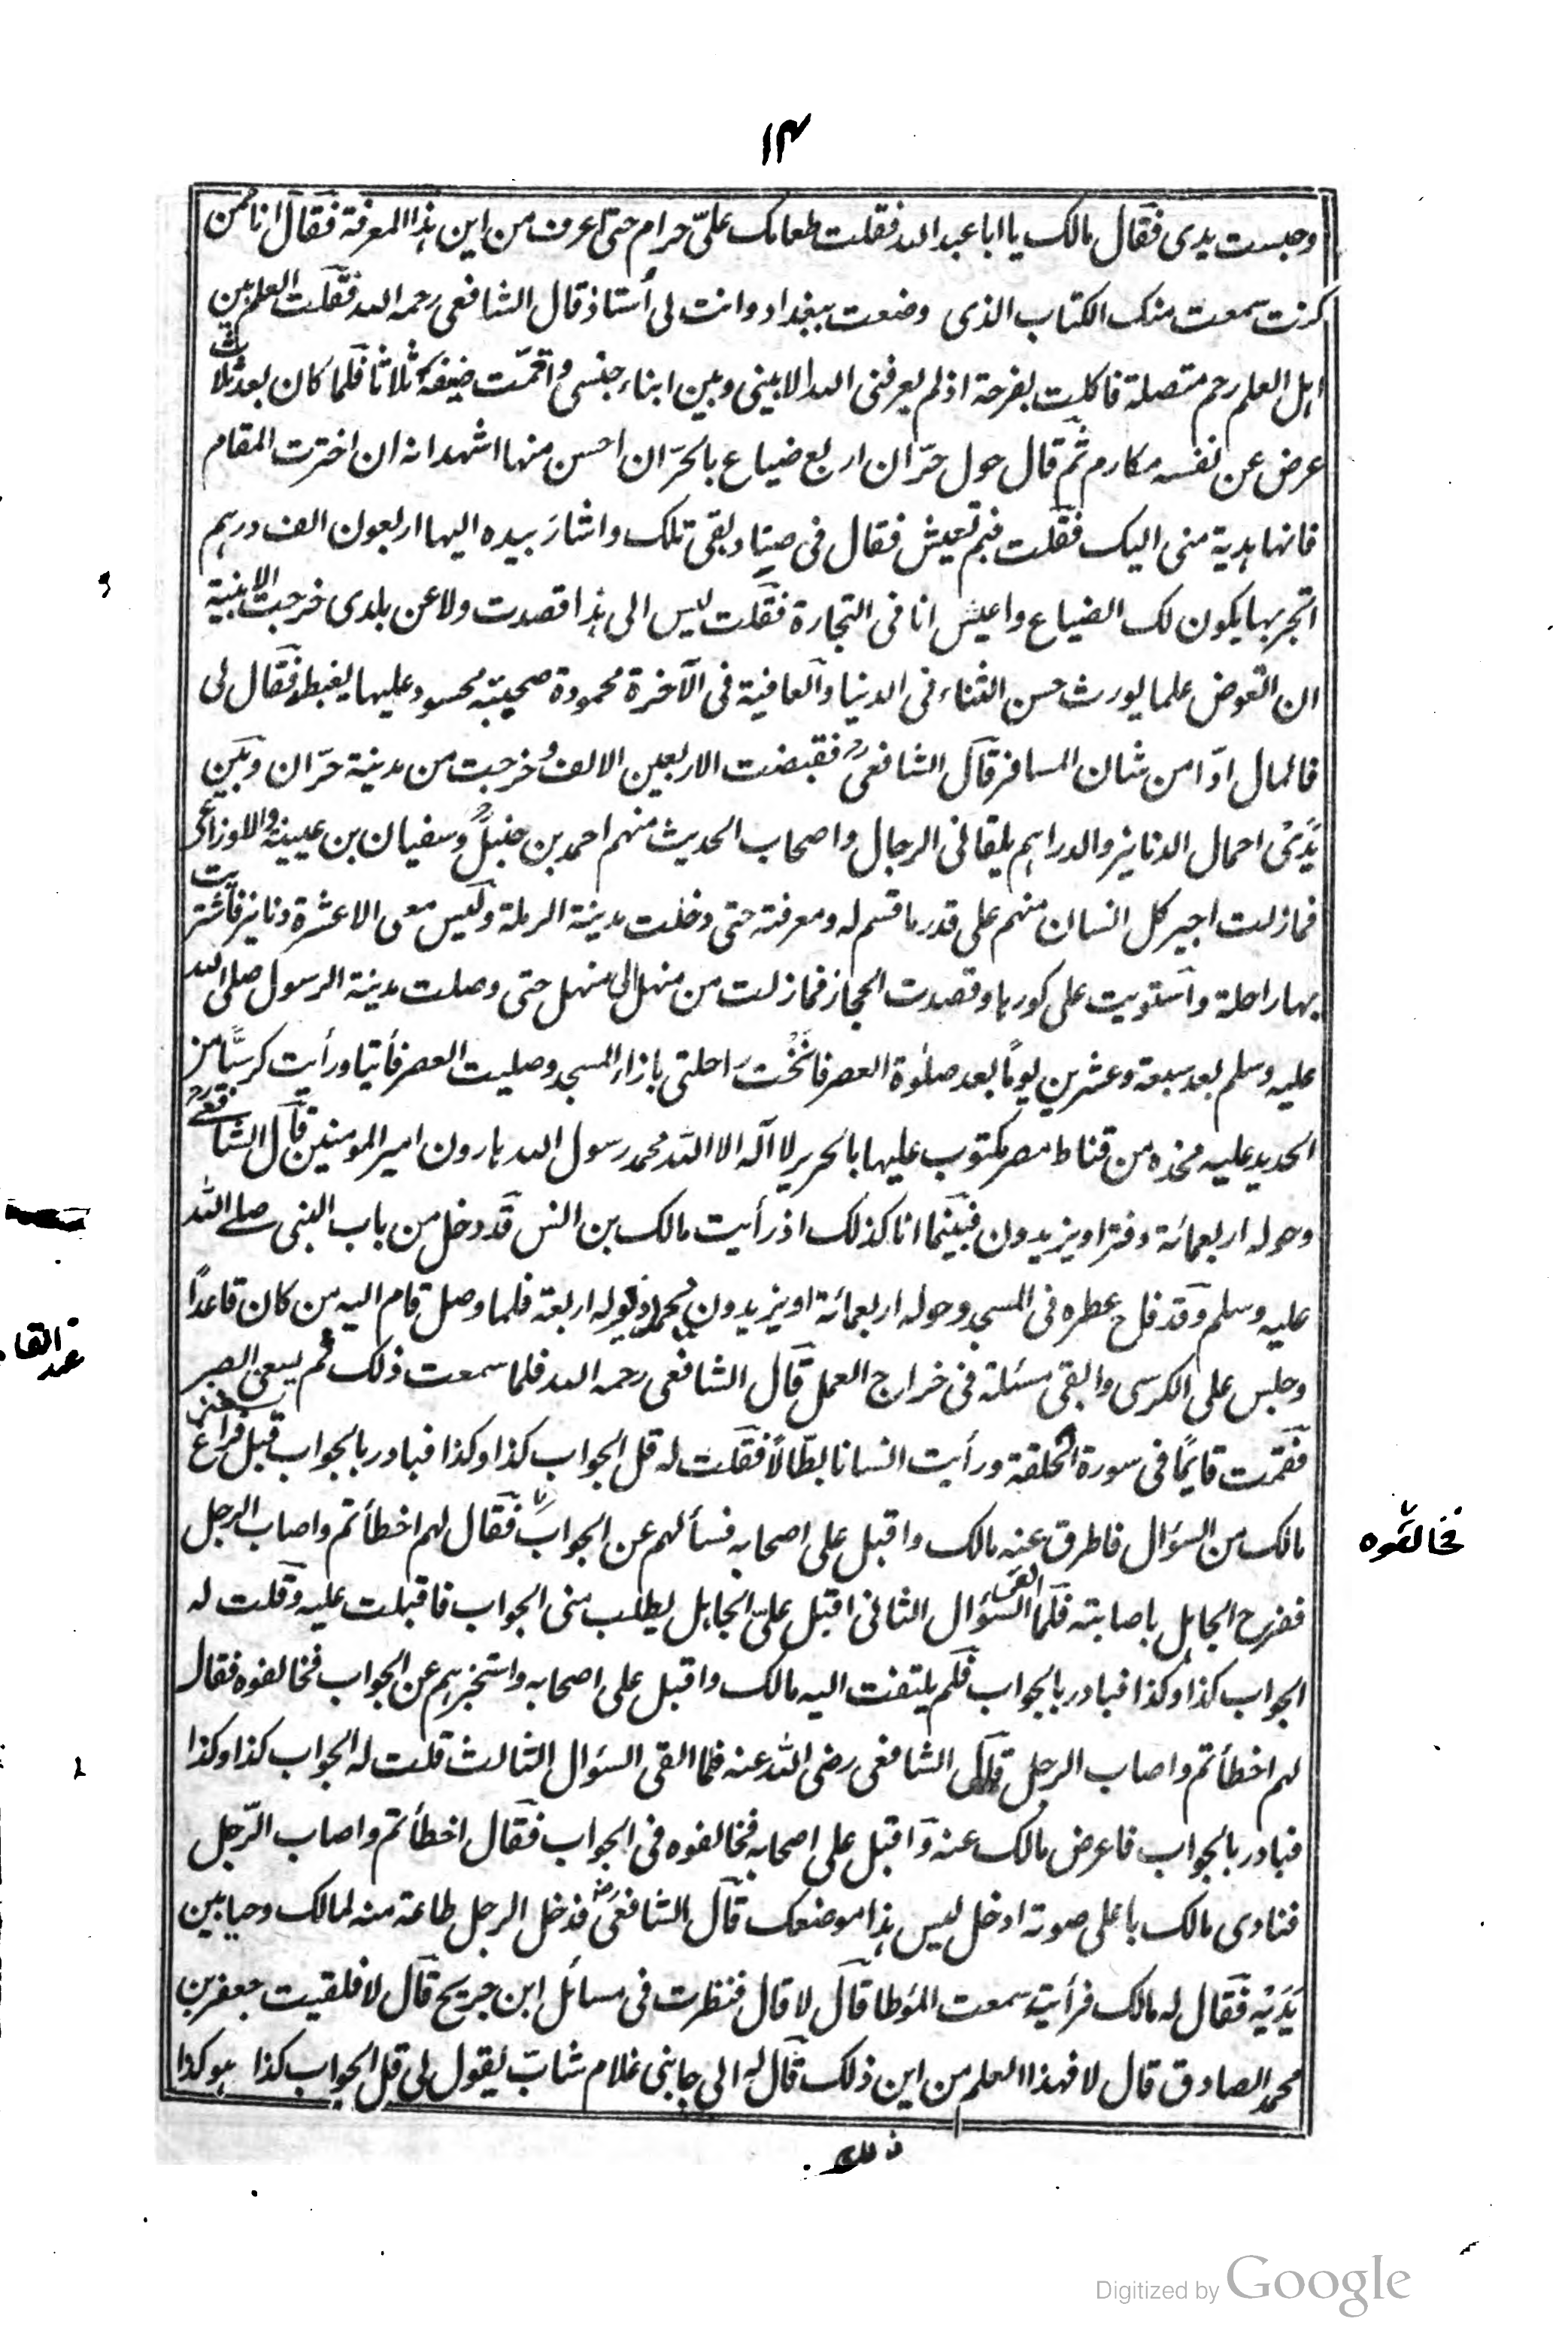 ١٣
وحبست يدى فقال مالك يا ابا عبد الله فقلت طعامك علىّ حرام حتى اعرف من اين هذا المعرفة فقال انا ممن
كنت سمعت منك الكتاب الذى وضعت ببغداد وانت لى أستاذ قال الشافعى رحمه الله فقلت العلم بين
اهل العلم رحم متصلة فاكلت بفرحة اذ لم يعرفنى الله الا بينى وبين ابناء جنسى واقمت ضيفه ثلاثا فلما كان بعد ثلاث
عرض عن نفسه مكارم ثم قال حول حرّان اربع ضياع بالحرّان احسن منها اشهد انه ان اخترت المقام
فانها هدية منى اليك فقلت فبم تعيش فقال فى وبقى تلك واشار بيده اليها اربعون الف درهم
اتجر بها يكون لك الضياع واعيش انا فى التجارة فقلت ليس الى هذا قصدت ولا عن بلدى خرجت
ان التعوض علما يورث حسن الثناء فى الدنيا والعافية فى الآخرة محمودة صحيبته محسود عليها يغبط فقال لى
فالمال اوّا من شان المسافر قال الشافعى فقبضت الاربعين الالف وخرجت من مدينة حرّان وبين
يدىّ احمال الدنانير والدراهم يلقانى الرجال واصحاب الحديث منهم احمد بن حنبل وسفيان بن عيينة والاوزاعى
فما زلت اجير كل انسان منهم على قدر ما قسم له ومعرفته حتى دخلت مدينة الرملة وليس معى الا عشرة دنانير فاشتريت
بها راحلة واستويت على كورها وقصدت الحجاز فما زلت من منهل الى منهل حتى وصلت مدينة الرسول صلى الله
عليه وسلم بعد سبعة وعشرين يوما بعد صلٰوة العصر فانخت راحلتى بازاء المسجد وصليت العصر فأتيا ورأيت كرسيا من
الحديد عليه مخده من قناط مصر مكتوب عليها بالحرير لا اله الا الله محمد رسول الله هارون امير المومنين قال الشافعى
وحوله اربعمائة دفترا ويزيدون فبينما انا كذلك اذ رأيت مالك بن انس قد دخل من باب النبى صلے الله
عليه وسلم وقد فاح عطره فى المسجد وحوله اربعمائة او يزيدون اربعة فلما وصل قام اليه من كان قاعدًا
وجلس على الكرسى والقى مسئلة فى خراج العمل قال الشافعى رحمه الله فلما سمعت ذلك لم يسعنى الصبر
فقمت قايمًا فى سورة الحلقة ورأيت انسانا بطّالًا فقلت له قل الجواب كذا وكذا فبادر بالجواب قبل فراغ
مالك من السؤال فاطرق عنه مالك واقبل على اصحابه فسألهم عن الجواب فقال لهم اخطأتم واصاب الرجل
فخالفوه
ففرح الجاهل باصابته فلما القى السؤال الثانى اقبل علىّ الجاهل يطلب منى الجواب فاقبلت عليه وقلت له
الجواب كذا وكذا فبادر بالجواب فلم يلتفت اليه مالك واقبل على اصحابه واستخبرهم عن الجواب فخالفوه فقال
لهم اخطأتم واصاب الرجل قال الشافعى رضى الله عنه فلما القى السؤال الثالث قلت له الجواب كذا وكذا
فبادر بالجواب فاعرض مالك عنه واقبل على اصحابه فخالفوه فى الجواب فقال اخطأتم واصاب الرّجل
فنادى مالك باعلى صوته ادخل ليس هذا موضعك قال الشافعى فدخل الرجل طاعة منه لمالك وحيا بين
يَدَيْه فقال له مالك فرأيت سمعت المؤطا قال لا قال فنظرت فى مسائل ابن جريج قال لا فلقيت جعفر بن
محمد الصادق قال لا فهذا العلم من اين ذلك قال له الى جابنى غلام شاب يقول لى قل الجواب كذا هو كذا
Digitized by Google